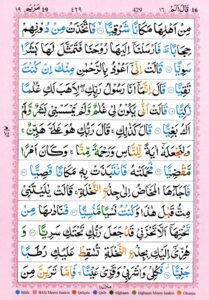 16 قَالَ اَلَمْ ١٦ 429 ٤٢٩ مَرْيَم 19 ١٩
مِنْ اَهْلِهَا مَكَانًا شَرْقِيًّا ۝ فَاتَّخَذَتْ مِنْ دُوْنِهِمْ
حِجَابًا ۪ فَاَرْسَلْنَاۤ اِلَيْهَا رُوْحَنَا فَتَمَثَّلَ لَهَا بَشَرًا
سَوِيًّا ۝ قَالَتْ اِنِّيْۤ اَعُوْذُ بِالرَّحْمٰنِ مِنْكَ اِنْ كُنْتَ
تَقِيًّا ۝ قَالَ اِنَّمَاۤ اَنَا رَسُوْلُ رَبِّكِ ۖ لِاَهَبَ لَكِ غُلٰمًا
زَكِيًّا ۝ قَالَتْ اَنّٰى يَكُوْنُ لِيْ غُلٰمٌ وَّلَمْ يَمْسَسْنِيْ بَشَرٌ وَّلَمْ
اَكُ بَغِيًّا ۝ قَالَ كَذٰلِكِ ۚ قَالَ رَبُّكِ هُوَ عَلَيَّ هَيِّنٌ ۚ
وَلِنَجْعَلَهٗۤ اٰيَةً لِّلنَّاسِ وَرَحْمَةً مِّنَّا ۚ وَكَانَ اَمْرًا
مَّقْضِيًّا ۝ فَحَمَلَتْهُ فَانْتَبَذَتْ بِهٖ مَكَانًا قَصِيًّا ۝
فَاَجَآءَهَا الْمَخَاضُ اِلٰى جِذْعِ النَّخْلَةِ ۚ قَالَتْ يٰلَيْتَنِيْ
مِتُّ قَبْلَ هٰذَا وَكُنْتُ نَسْيًا مَّنْسِيًّا ۝ فَنَادٰىهَا مِنْ
تَحْتِهَاۤ اَلَّا تَحْزَنِيْ قَدْ جَعَلَ رَبُّكِ تَحْتَكِ سَرِيًّا ۝
وَهُزِّيْۤ اِلَيْكِ بِجِذْعِ النَّخْلَةِ تُسٰقِطْ عَلَيْكِ رُطَبًا
جَنِيًّا ۝ فَكُلِيْ وَاشْرَبِيْ وَقَرِّيْ عَيْنًا ۚ فَاِمَّا تَرَيِنَّ مِنَ